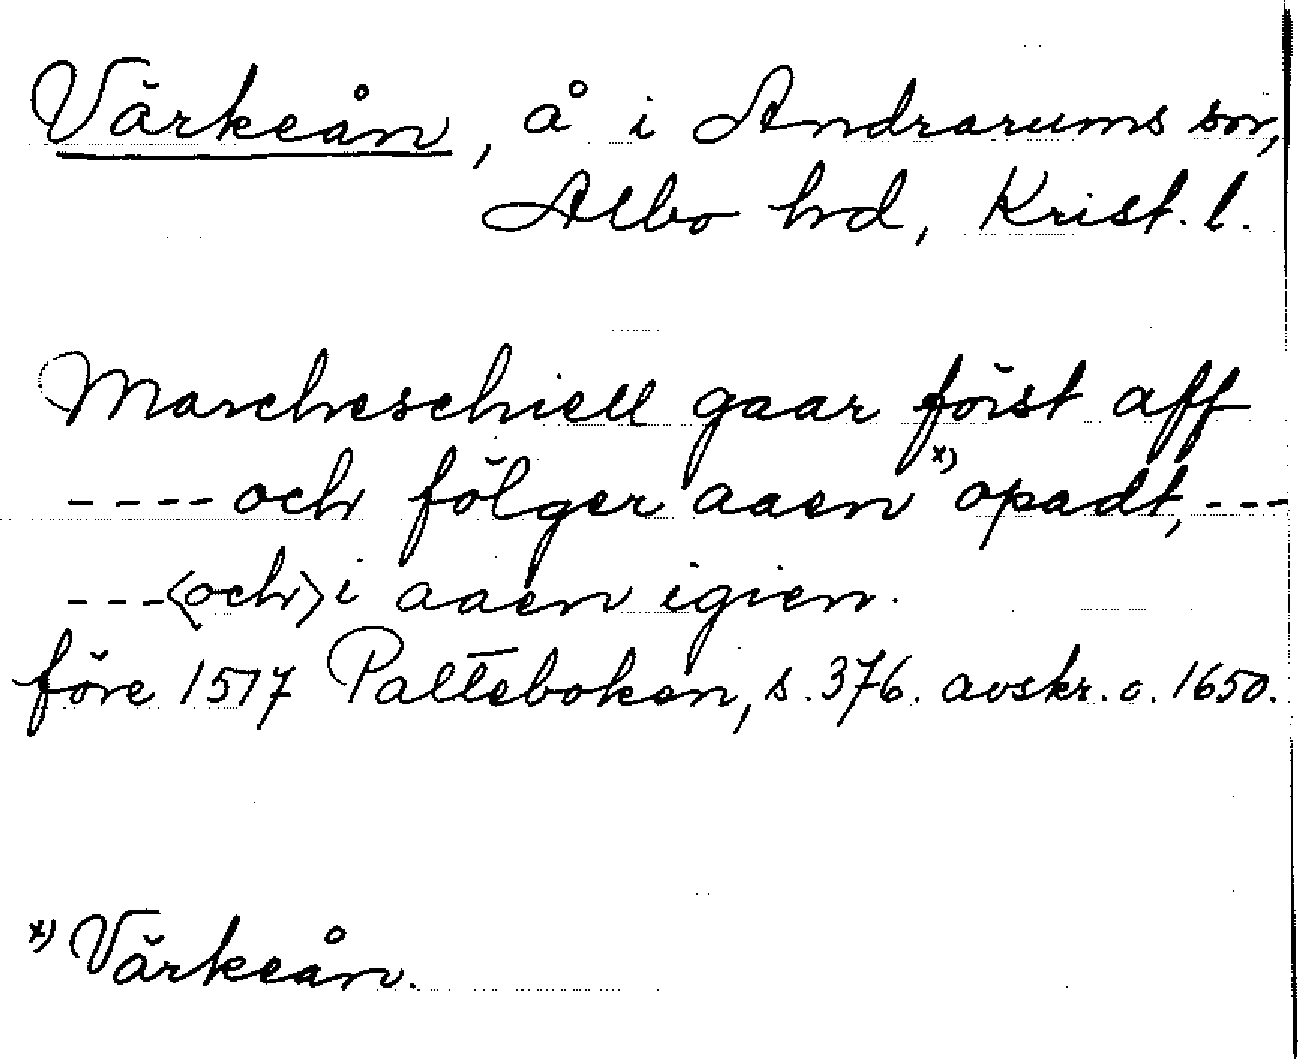 Värkeån, å i Andrarums sn,
Albo hd, Krist. l.
Marcheschiell gaar först aff
---- och fölger aaen x) opadt, ---
--- <och> i aaen igien.
före 1517 Palteboken, s. 376. avskr. c. 1650.
x) Värkeån.